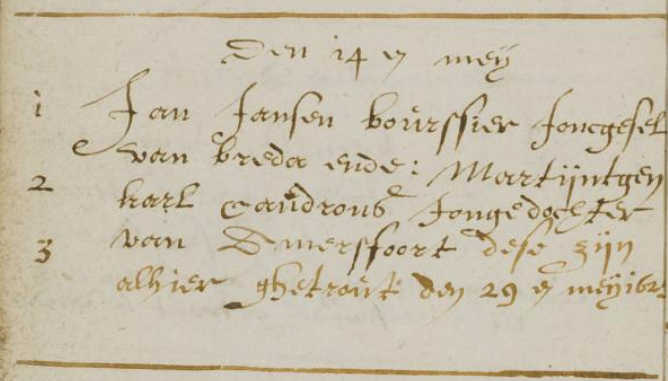 Den 14 en meÿ
1 Jan Jansen boŭrssier Joncgesel
van breda ende: Martijntgen
2 karl Caŭdrons Jongedochter
3 van Amersfoort dese zijn
alhier ghetroŭt den 29 en meÿ